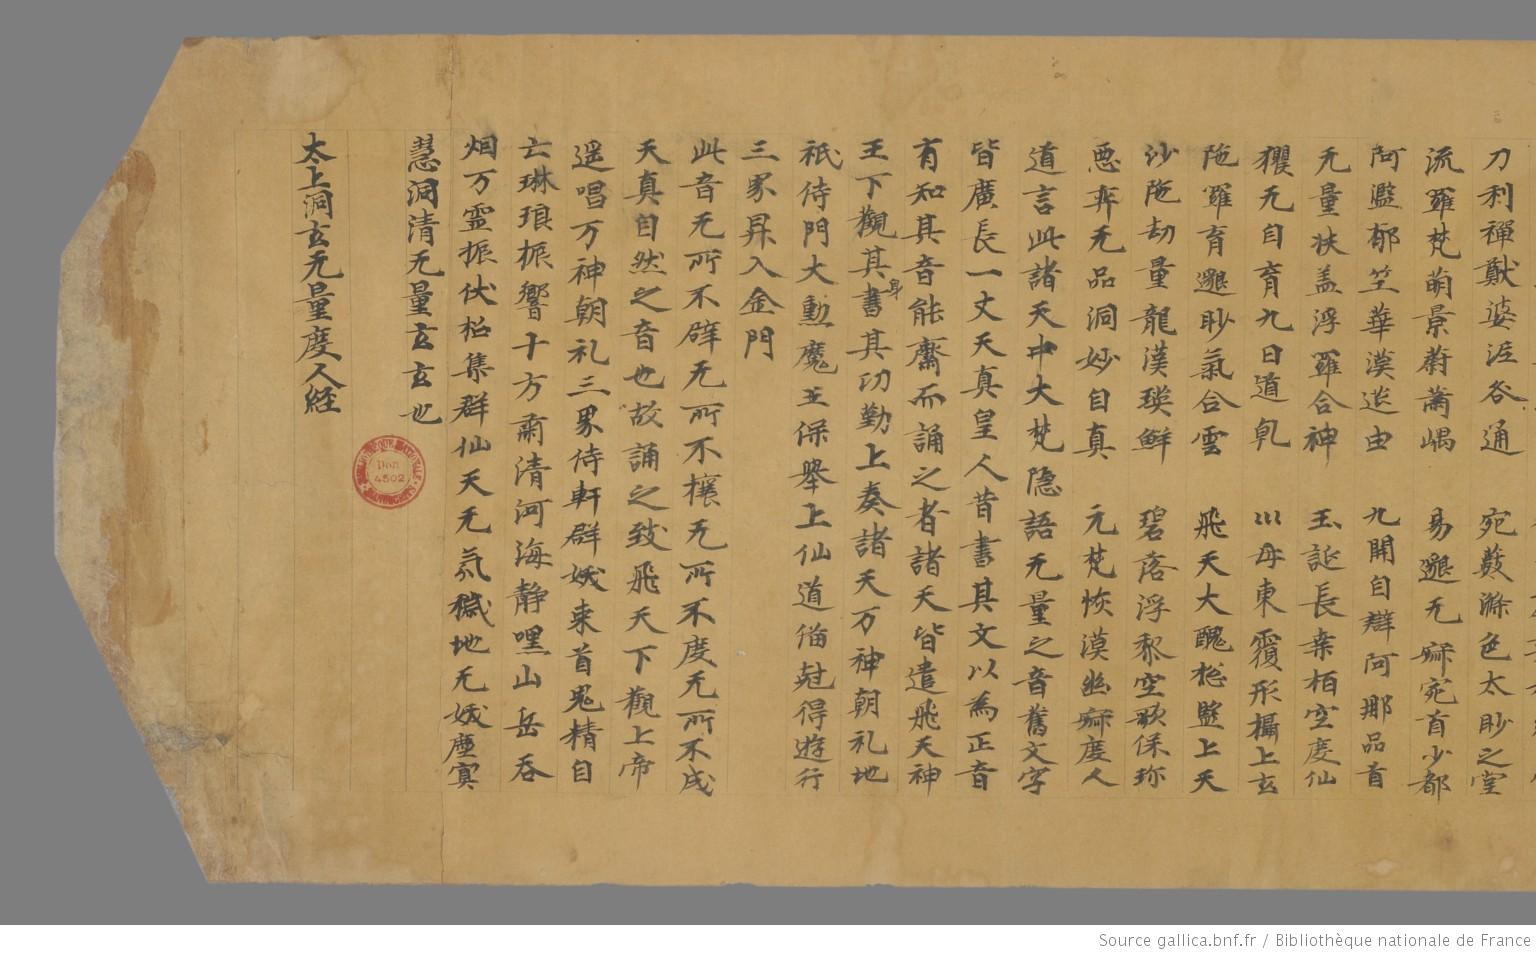 刀利禪猷婆泥咎通 宛藪滌色太眇之堂
流羅梵萌景蔚蕭嵎 易邈无寂宛首少都
阿濫郁竺華漠莚由 九開自辯阿那品首
无量扶盖浮羅合神 玉誕長桑栢空度仙
玃无自育九日道乹 川母東覆形攝上玄
陁羅育邈眇氣合雲 飛天大醜揔監上天
沙陁劫量龍漢瑛鮮 碧落浮黎空歌保珎
恶弈无品洞妙自真 元梵恢漠幽寂度人
道言此諸天中大梵隐語无量之音舊文字
皆廣長一丈天真皇人昔書其文以為正音
有知其音能齋而誦之者諸天皆遣飛天神
王下觀其身書其功勤上奏諸天万神朝礼地
祇侍門大勳魔王保舉上仙道俻尅得遊行
三界昇入金門
此音无所不辟无所不禳无所不度无所不成
天真自然之音也故誦之致飛天下觀上帝
遥唱万神朝礼三界侍軒群妖束首鬼精自
亡琳琅振響十方肅清河海静嘿山岳吞
烟万霊振伏招集群仙天无氛穢地无妖塵冥
慧洞清无量玄玄也
太上洞玄无量度人經
Don
4502
Source gallica.bnf.fr / Bibliothèque nationale de France